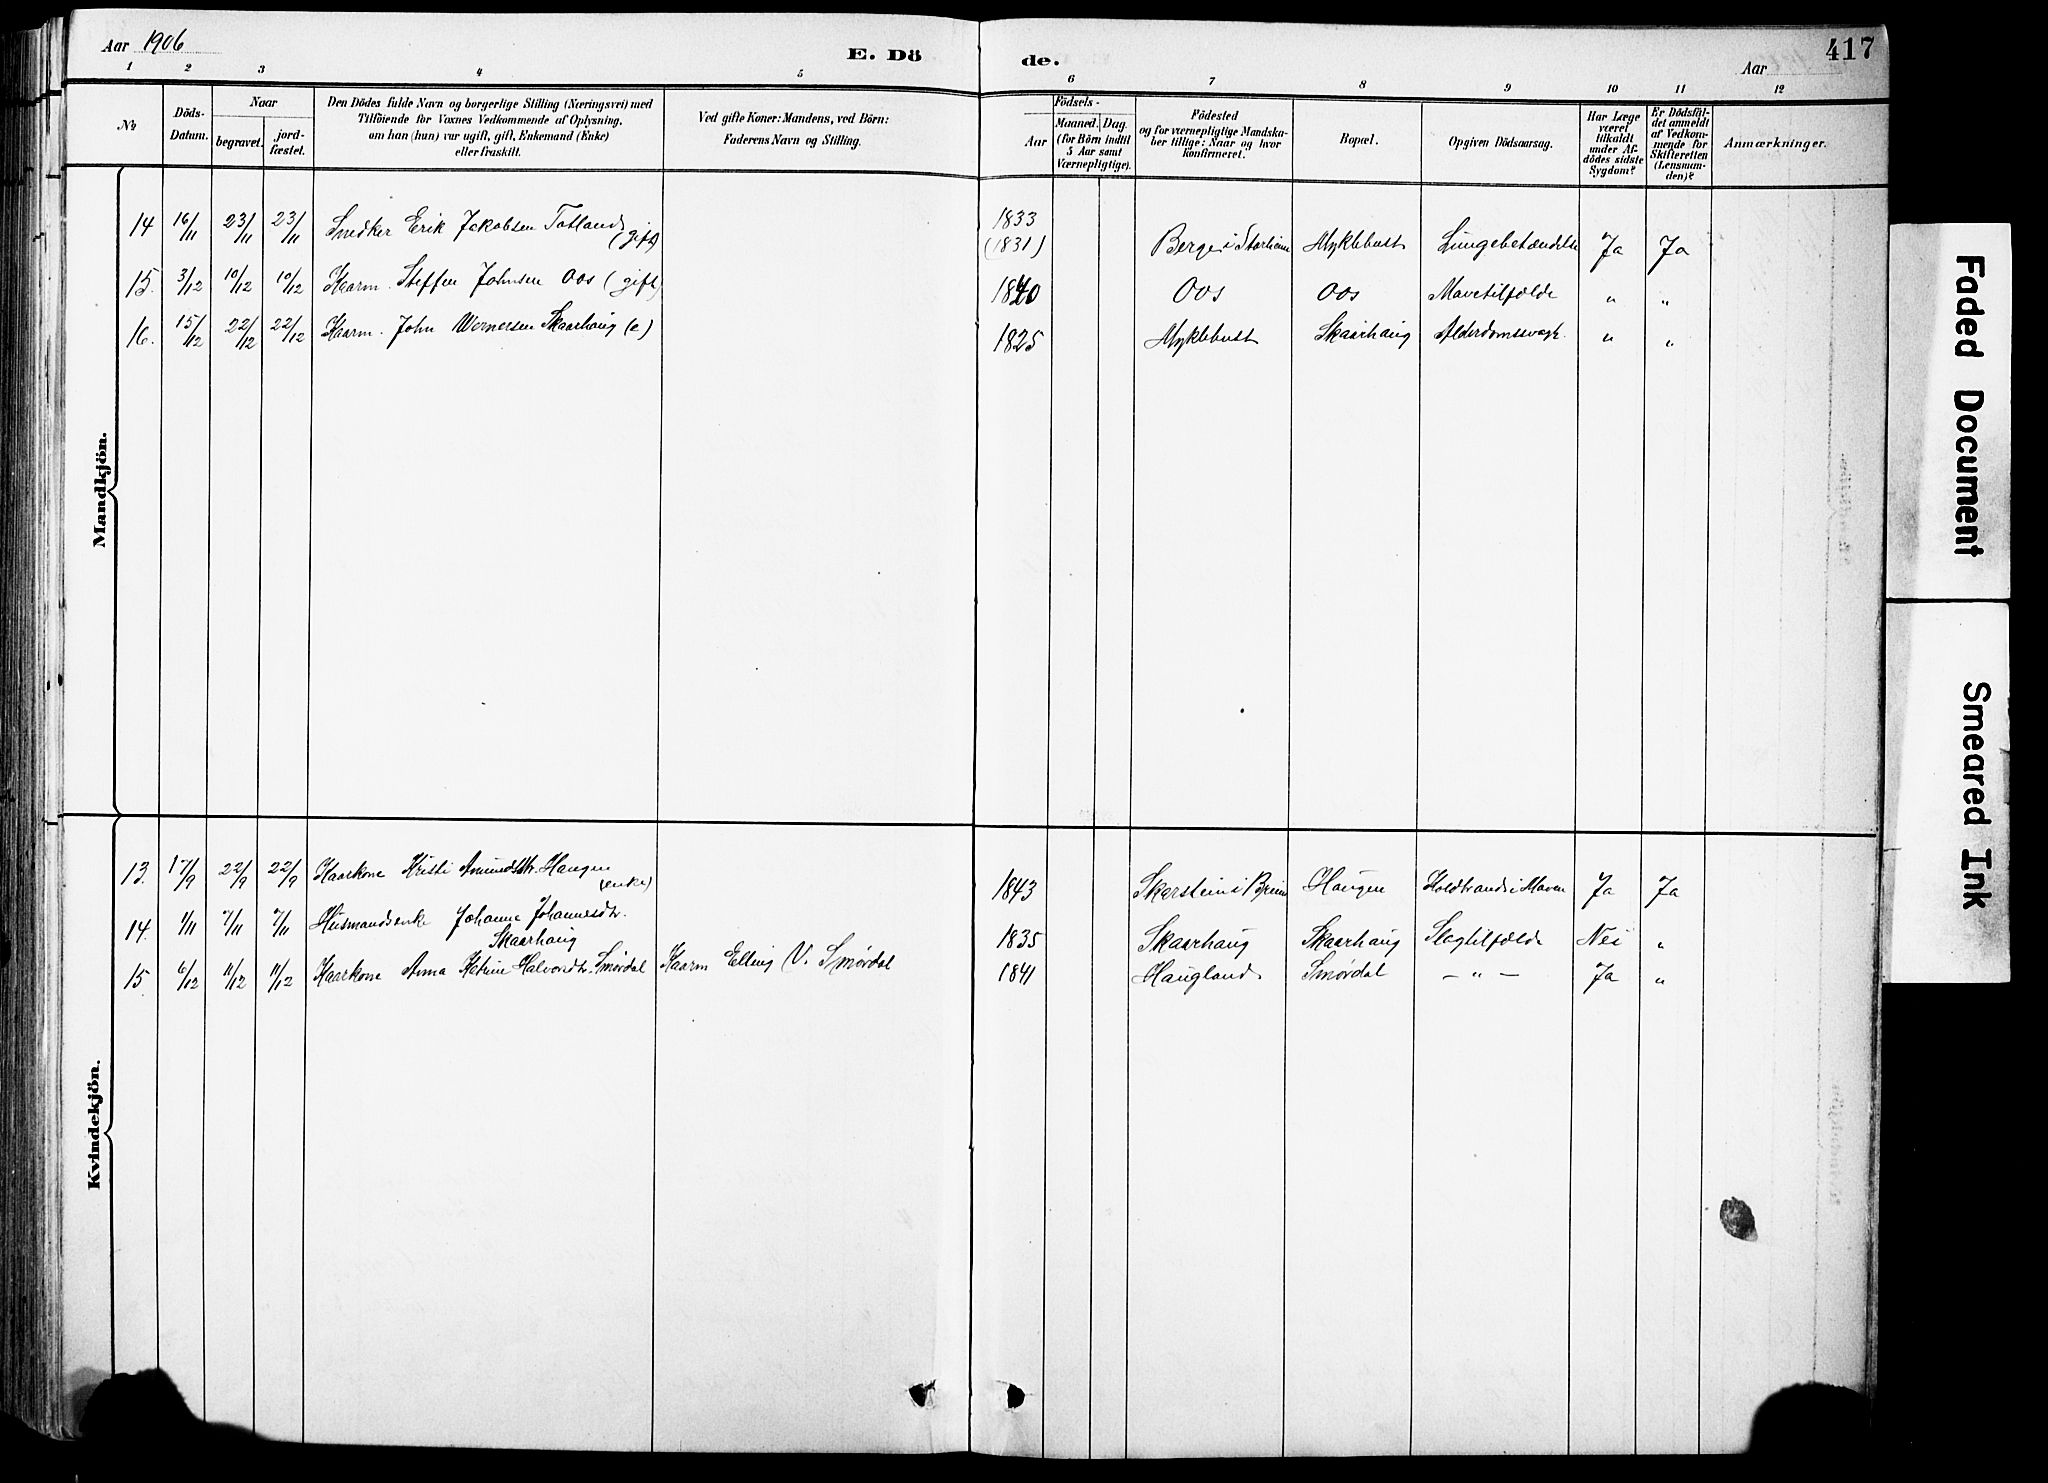 Aar 1906
E. Dö
de.
Aar
417
1 2 3 4 5 6 7 8 9 10 11 12
No
Döds-Datum.
Naar
begravet.
jord-fæstet.
Den Dödes fulde Navn og borgerlige Stilling (Næringsvei) med
Tilföiende for Voxnes Vedkommende af Oplysning,
om han (hun) var ugift, gift, Enkemand (Enke)
eller fraskilt.
Ved gifte Koner: Mandens, ved Börn:
Faderens Navn og Stilling.
Födsels-
Aar
Maaned. Dag.
(for Börn indtil
5 Aar samt
Værnepligtige).
Födested
og for værnepligtige Mandska-
ber tillige: Naar og hvor
konfirmeret.
Bopæl.
Opgiven Dödsaarsag.
Har Læge
været
tilkaldt
under Af-
dödes sidste
Sygdom?
Er Dödsfal-
det anmeldt
af Vedkom-
mende for
Skifteretten
(Lensman-
den)?
Anmærkninger.
Mandkjön.
14 16/11 23/11 23/11 Snedker Erik Jakobsen Totland (gift) 1833 (1831) Berge i Starheim Myklebust Lungebetændelse Ja Ja
15. 3/12 10/12 10/12 Kaarm. Steffen Johnsen Oos (gift) 1840 Oos Oos Mavetilfælde " "
16. 15/12 22/12 22/12 Kaarm. John Wernersen Skaarhaug (e) 1825 Myklebust Skaarhaug Alderdomssvagh. " "
Kvindekjön.
13. 17/9 22/9 22/9 Kaarkone Kristi Amundsdtr. Haugen (enke) 1843 Skarstein i Breim Haugen Koldbrand i Maven Ja Ja
14. 1/11 7/11 7/11 Husmandsenke Johanne Johannesdtr. Skaarhaug 1835 Skaarhaug Skaarhaug Slagtilfælde Nei "
15. 6/12 11/12 11/12 Kaarkone Anna Katrine Halvorsdtr. Smørdal Kaarm Elling V. Smørdal 1841 Haugland Smørdal — " — Ja "
Faded Document
Smeared Ink